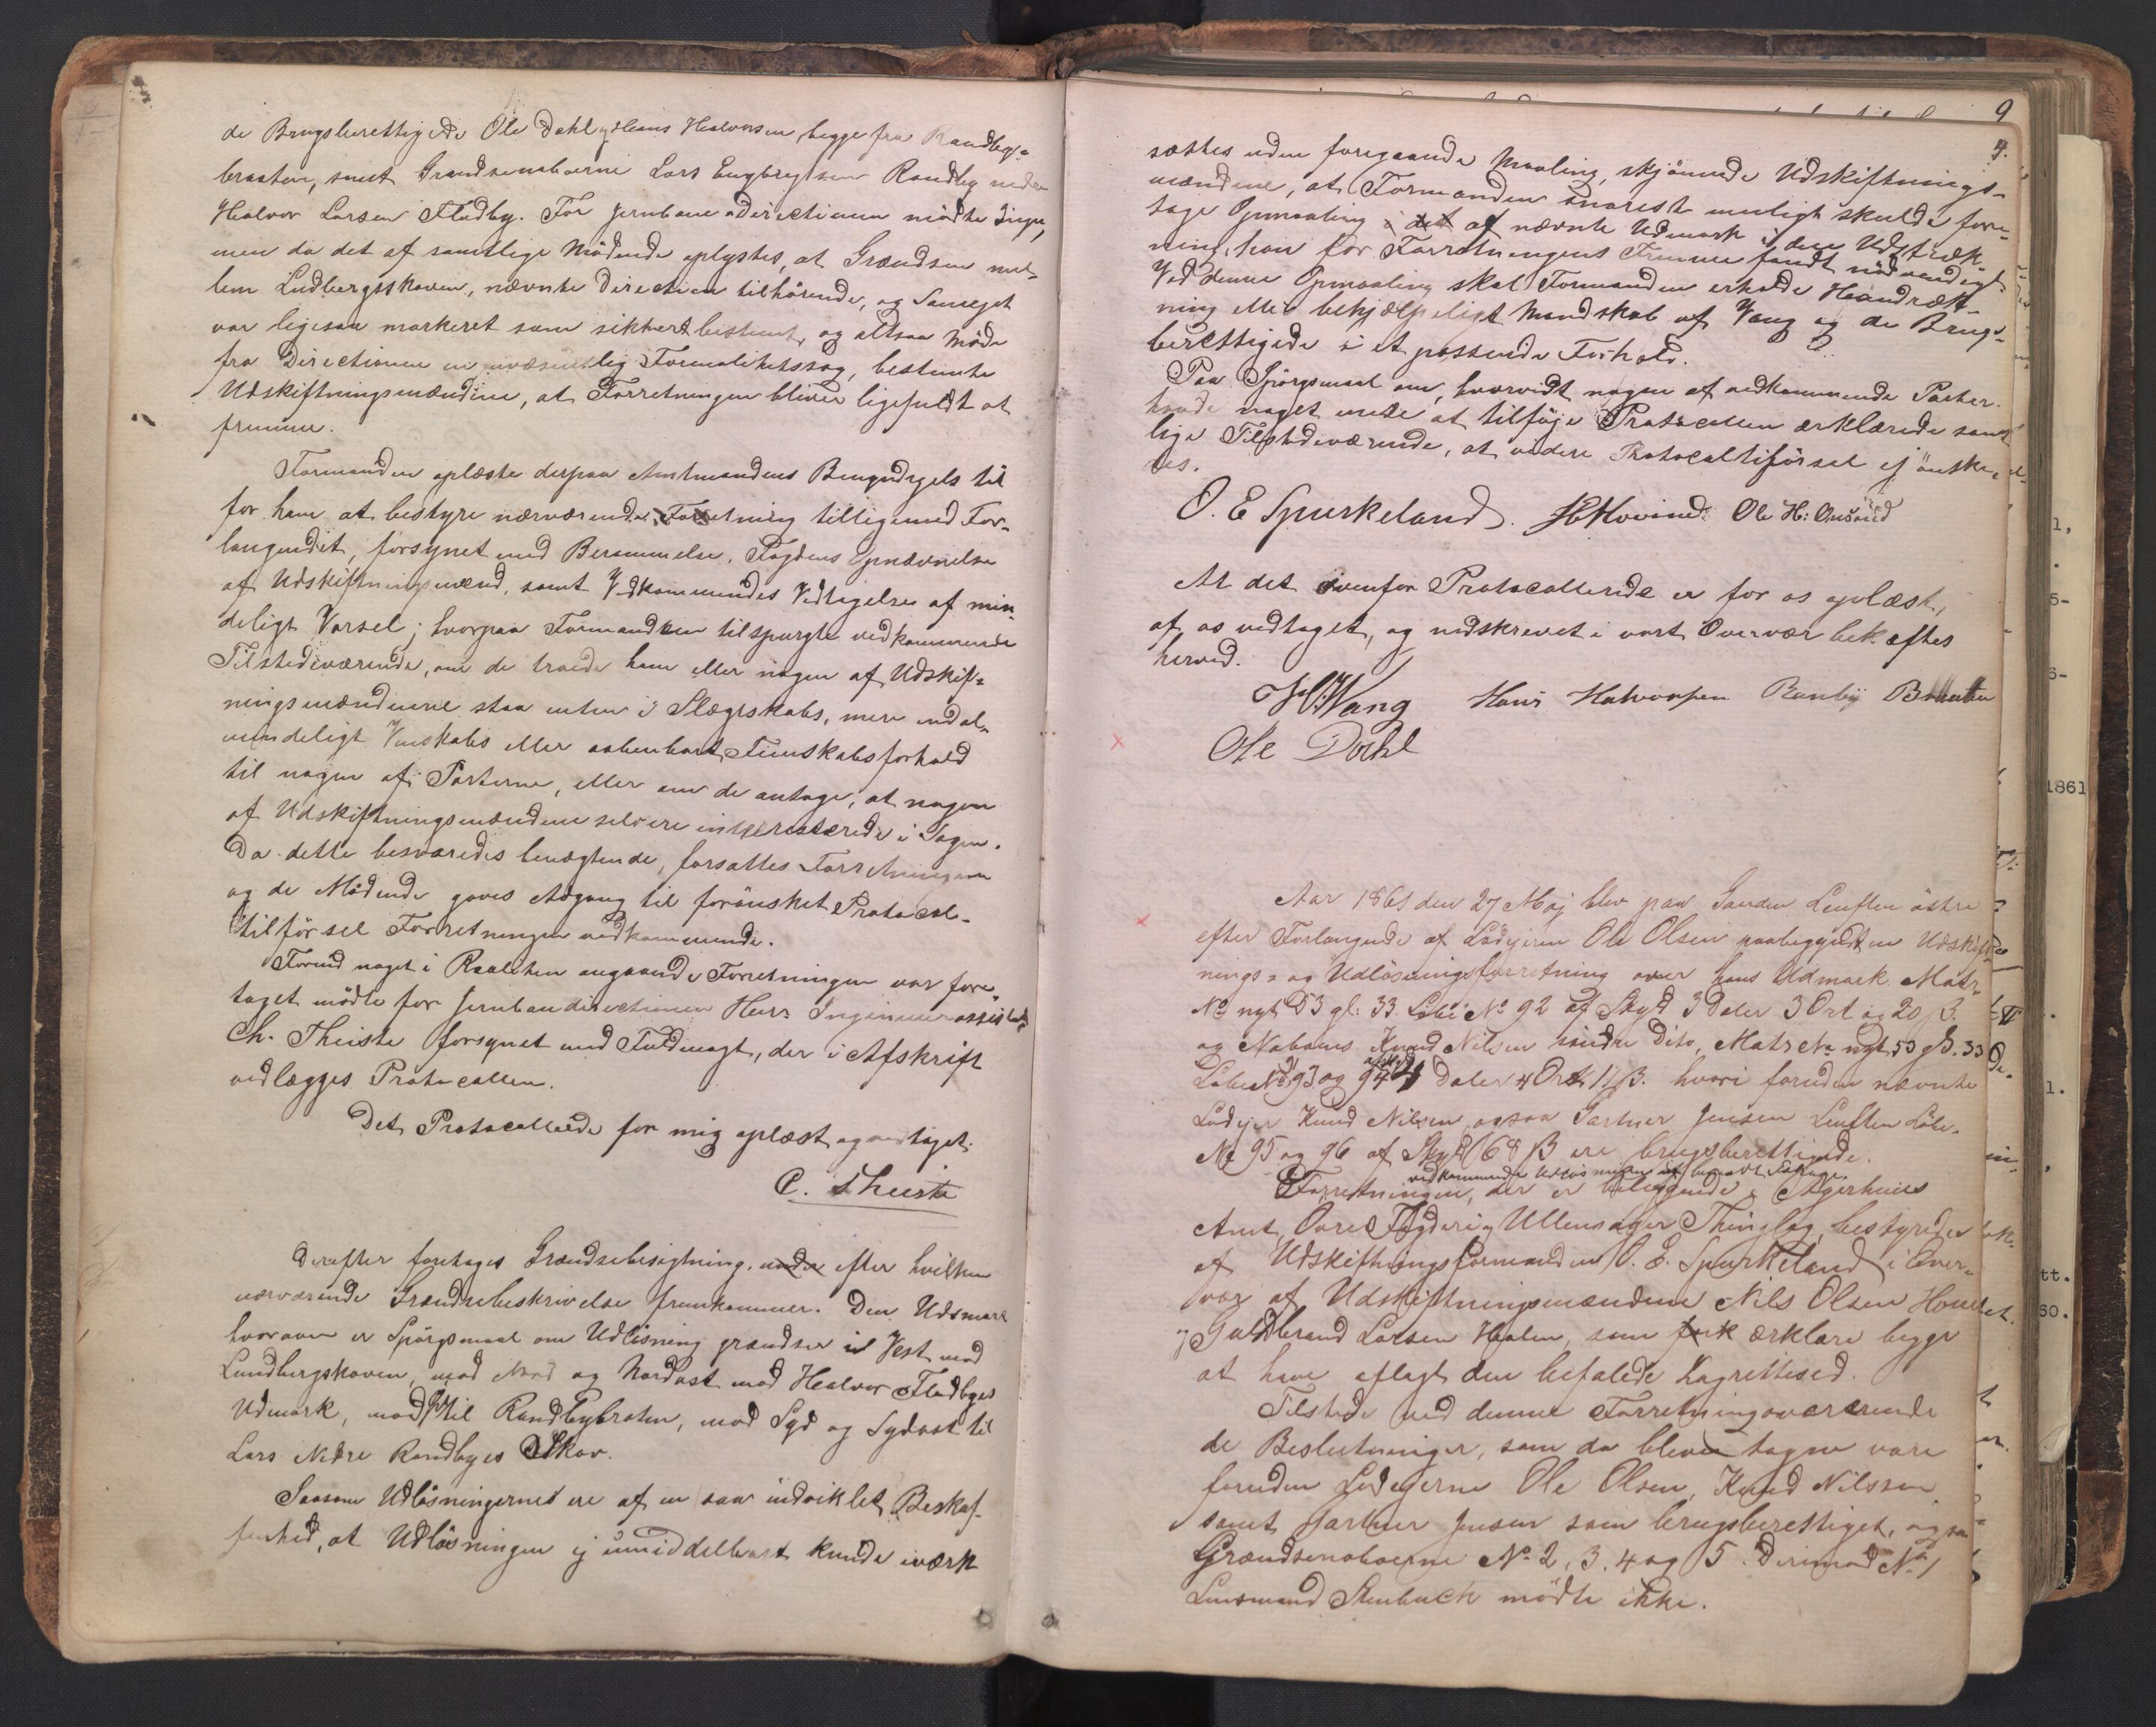 de Brugsberettigede Ole Dahl og Hans Halvorsen begge fra Randbye-
braaten, samt Grændsenaboerne Lars Engbregtsen Randby nedre
Halvor Larsen Fladby. For Jernbanedirectionen mødte Ingen,
men da det af samtlige Mødende oplystes, at Grændsen mel-
lem Lundbergsskoven, nævnte Direction tilhørende, og Sameiet
var ligesaa markeret som sikkert bestemt, og altsaa Møde
fra Directionen en uvæsentlig Formalitetssag, bestemte
Udskiftningsmændene, at Forretningen bliver ligefuldt at
fremme.
Formanden oplæste derpaa Amtmandens Bemyndigelse til
for ham at bestyre nærværende Forretning tilligemed For-
langendet, forsynet med Berammelse, Fogdens Opnævnelse
af Udskiftningsmænd, samt Vedkommendes Vedtagelse af min-
deligt Varsel; hvorpaa Formanden tilspurgte vedkommende
Tilstedeværende, om de troede ham eller nogen af Udskift-
ningsmændene staa enten i Slægtskabs, mere end al-
mindeligt Venskabs eller aabenbart Fiendskabsforhold
til nogen af Parterne, eller om de antage, at nogen
af Udskiftningsmændene selv ere interesserede i Sagen.
Da dette besvaredes benægtende, forsattes Forretningen
og de Mødende gaves Adgang til forønsket Protocol-
tilførsel Forretningen vedkommende.
Forend noget i Realiteten angaaende Forretningen var fore-
taget mødte for Jernbanedirectionen Herr Ingenieurassistent
Ch. Theiste forsynet med Fuldmagt, der i Afskrift
vedlægges Protocollen.
Det Protocollerede for mig oplæst og vedtaget.
C. Theiste
Derefter foretages Grændsebesigtning, under efter hvilken
nærværende Grændsebeskrivelse fremkommer. Den Udmark
hvorover er Spørgsmaal om Udløsning grændser til Vest mod
Lundbergskoven, mod Nord og Nordost mod Halvor Fladbyes
Udmark, mod Øst til Randbybraten, mod Syd og Sydost til
Lars Nedre Randbyes Skov.
Saasom Udløsningerne ere af en saa indviklet Beskaf-
fenhed, at Udløsningen ej umiddelbart kunde iværk
9
4.
sættes uden foregaaende Maaling, skjønnede Udskiftnings-
mændene, at Formanden snarest muligt skulde fore-
tage Opmaaling i det af nævnte Udmark i den Udstræk-
ning, han for Forretningens Fremme fandt nødvendigt.
Ved denne Opmaaling skal Formanden erholde Haandræk-
ning eller behjælpeligt Mandskab af Vang og de Brugs-
berettigede i et passende Forhold.
Paa Spørgsmaal om, hvorvidt nogen af vedkommende Parter
havde noget mere at tilføje Protocollen erklærede samt-
lige Tilstedeværende, at videre Protocoltilførsel ej ønske-
des.
O. E. Spurkeland. H Hovind. Ole H: Onsrud
At det ovenfor Protocollerede er for os oplæst,
af os vedtaget, og nedskrevet i vort Overvær bekræftes
herved.
H. Vang Hans Halvorsen Ranby Braaten
Ole Dahl
Aar 1861 den 27 Maj blev paa Gaarden Leuften østre
efter Forlangende af Lodejeren Ole Olsen paabegyndt en Udskift-
nings- og Udløsningsforretning over hans Udmark Matr.
No nyt 53 gl: 33. Løbe No 92 af Skyld 3 Daler 3 Ort og 20 ß.
og Naboens Knud Nilsen søndre Dito, Matr No nyt 53 gl. 33
Løbe No 93 og 94 af Skyld 4 Daler 4 Ort 11 ß. hvori foruden nævnte
Lodejer Knud Nilsen ogsaa Gartner Jensen Leuften Løbe-
No 95 og 96 af Skyld 68 ß ere brugsberettigede.
vedkommende Udløsningen af benævnte
Forretningen, der er beliggende i Agershuus
Amt Øvre Fogderi og Ullensager Thinglag, bestyredes
af Udskiftningsformanden O. E. Spurkeland i Over-
vær af Udskiftningsmændene Nils Olsen
og Guldbrand Larsen Hølen, som fik erklære begge
at have aflagt den befalede Lagrettesed.
Tilstede ved denne Forretning overværende
de Beslutninger, som da bleve tagne vare
foruden Lodejerne Ole Olsen, Knud Nilssen
samt Gartner Jensen som brugsberettiget, ogsaa
Grændsenaboerne No 2, 3, 4 og 5. Derimod No 1
Lensmand Stenbuch mødte ikke.
1861